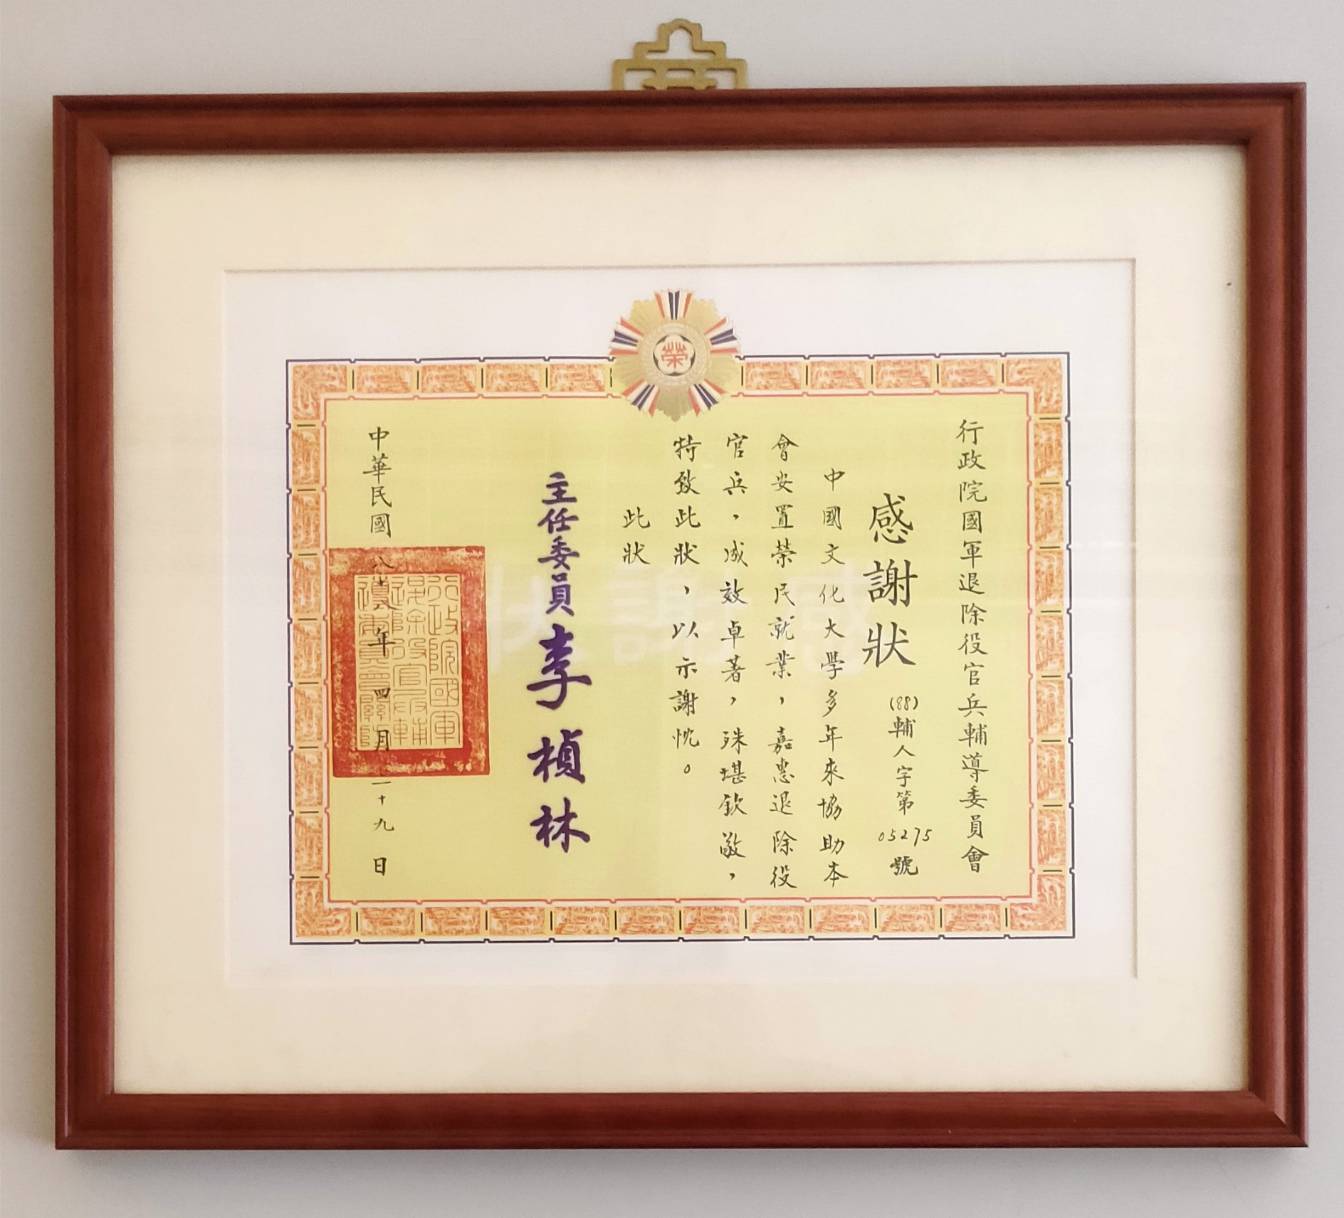 榮
行政院國軍退除役官兵輔導委員會
感謝狀
(88)輔人字第05275號
中國文化大學多年來協助本
會安置榮民就業，嘉惠退除役
官兵，成效卓著，殊堪欽敬，
特致此狀，以示謝忱。
此狀
主任委員李楨林
中華民國八十八年四月二十九日